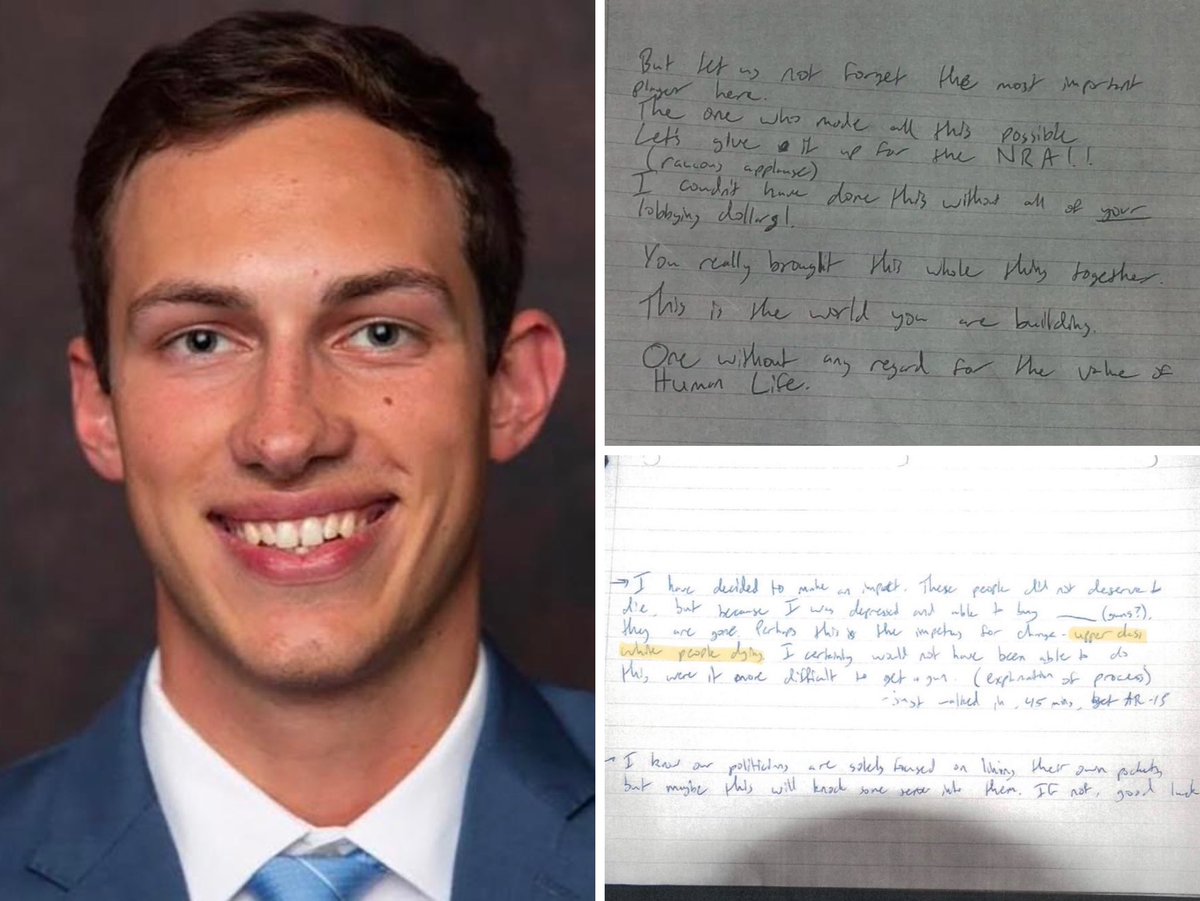 But let us not forget the most important
player here.
The one who made all this possible
Let's give it up for the NRA!!
(raucous applause)
I couldn't have done this without all of your
lobbying dollars!
You really brought this whole thing together.
This is the world you are building.
One without any regard for the value of
Human Life.
→ I have decided to make an impact. These people did not deserve to
die, but because I was depressed and able to buy ____ (guns?),
they are gone. Perhaps this is the impetus for change - upper class
white people dying. I certainly would not have been able to do
this, were it more difficult to get a gun. (explanation of process)
- just walked in, 45 mins, get AR-15
→ I know our politicians are solely focused on lining their own pockets,
but maybe this will knock some sense into them. If not, good luck